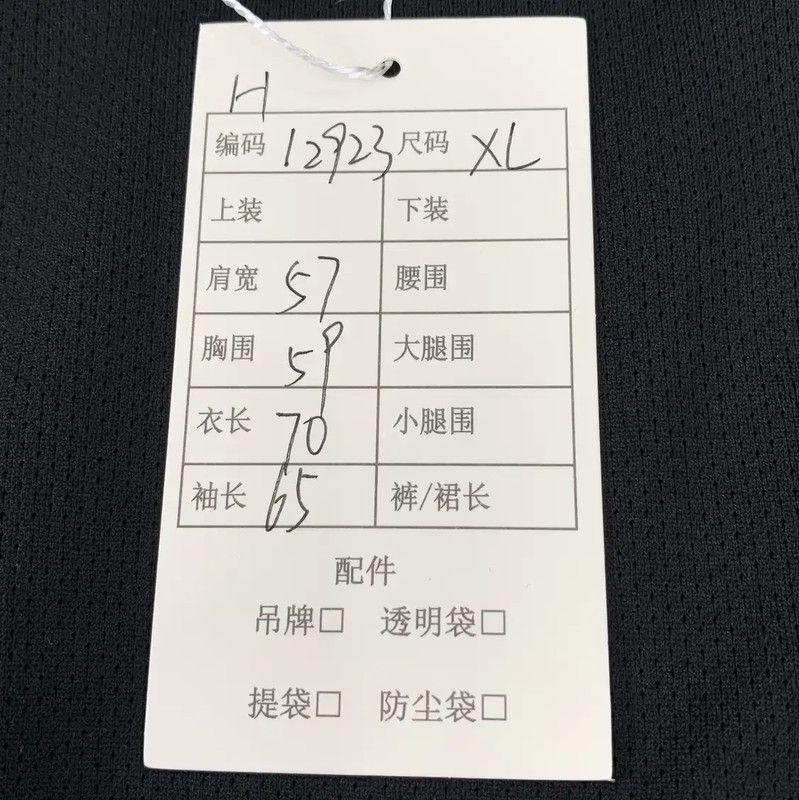 H
编码 12923 尺码 XL
上装 下装
肩宽 57 腰围
胸围 59 大腿围
衣长 70 小腿围
袖长 65 裤/裙长
配件
吊牌□ 透明袋□
提袋□ 防尘袋□